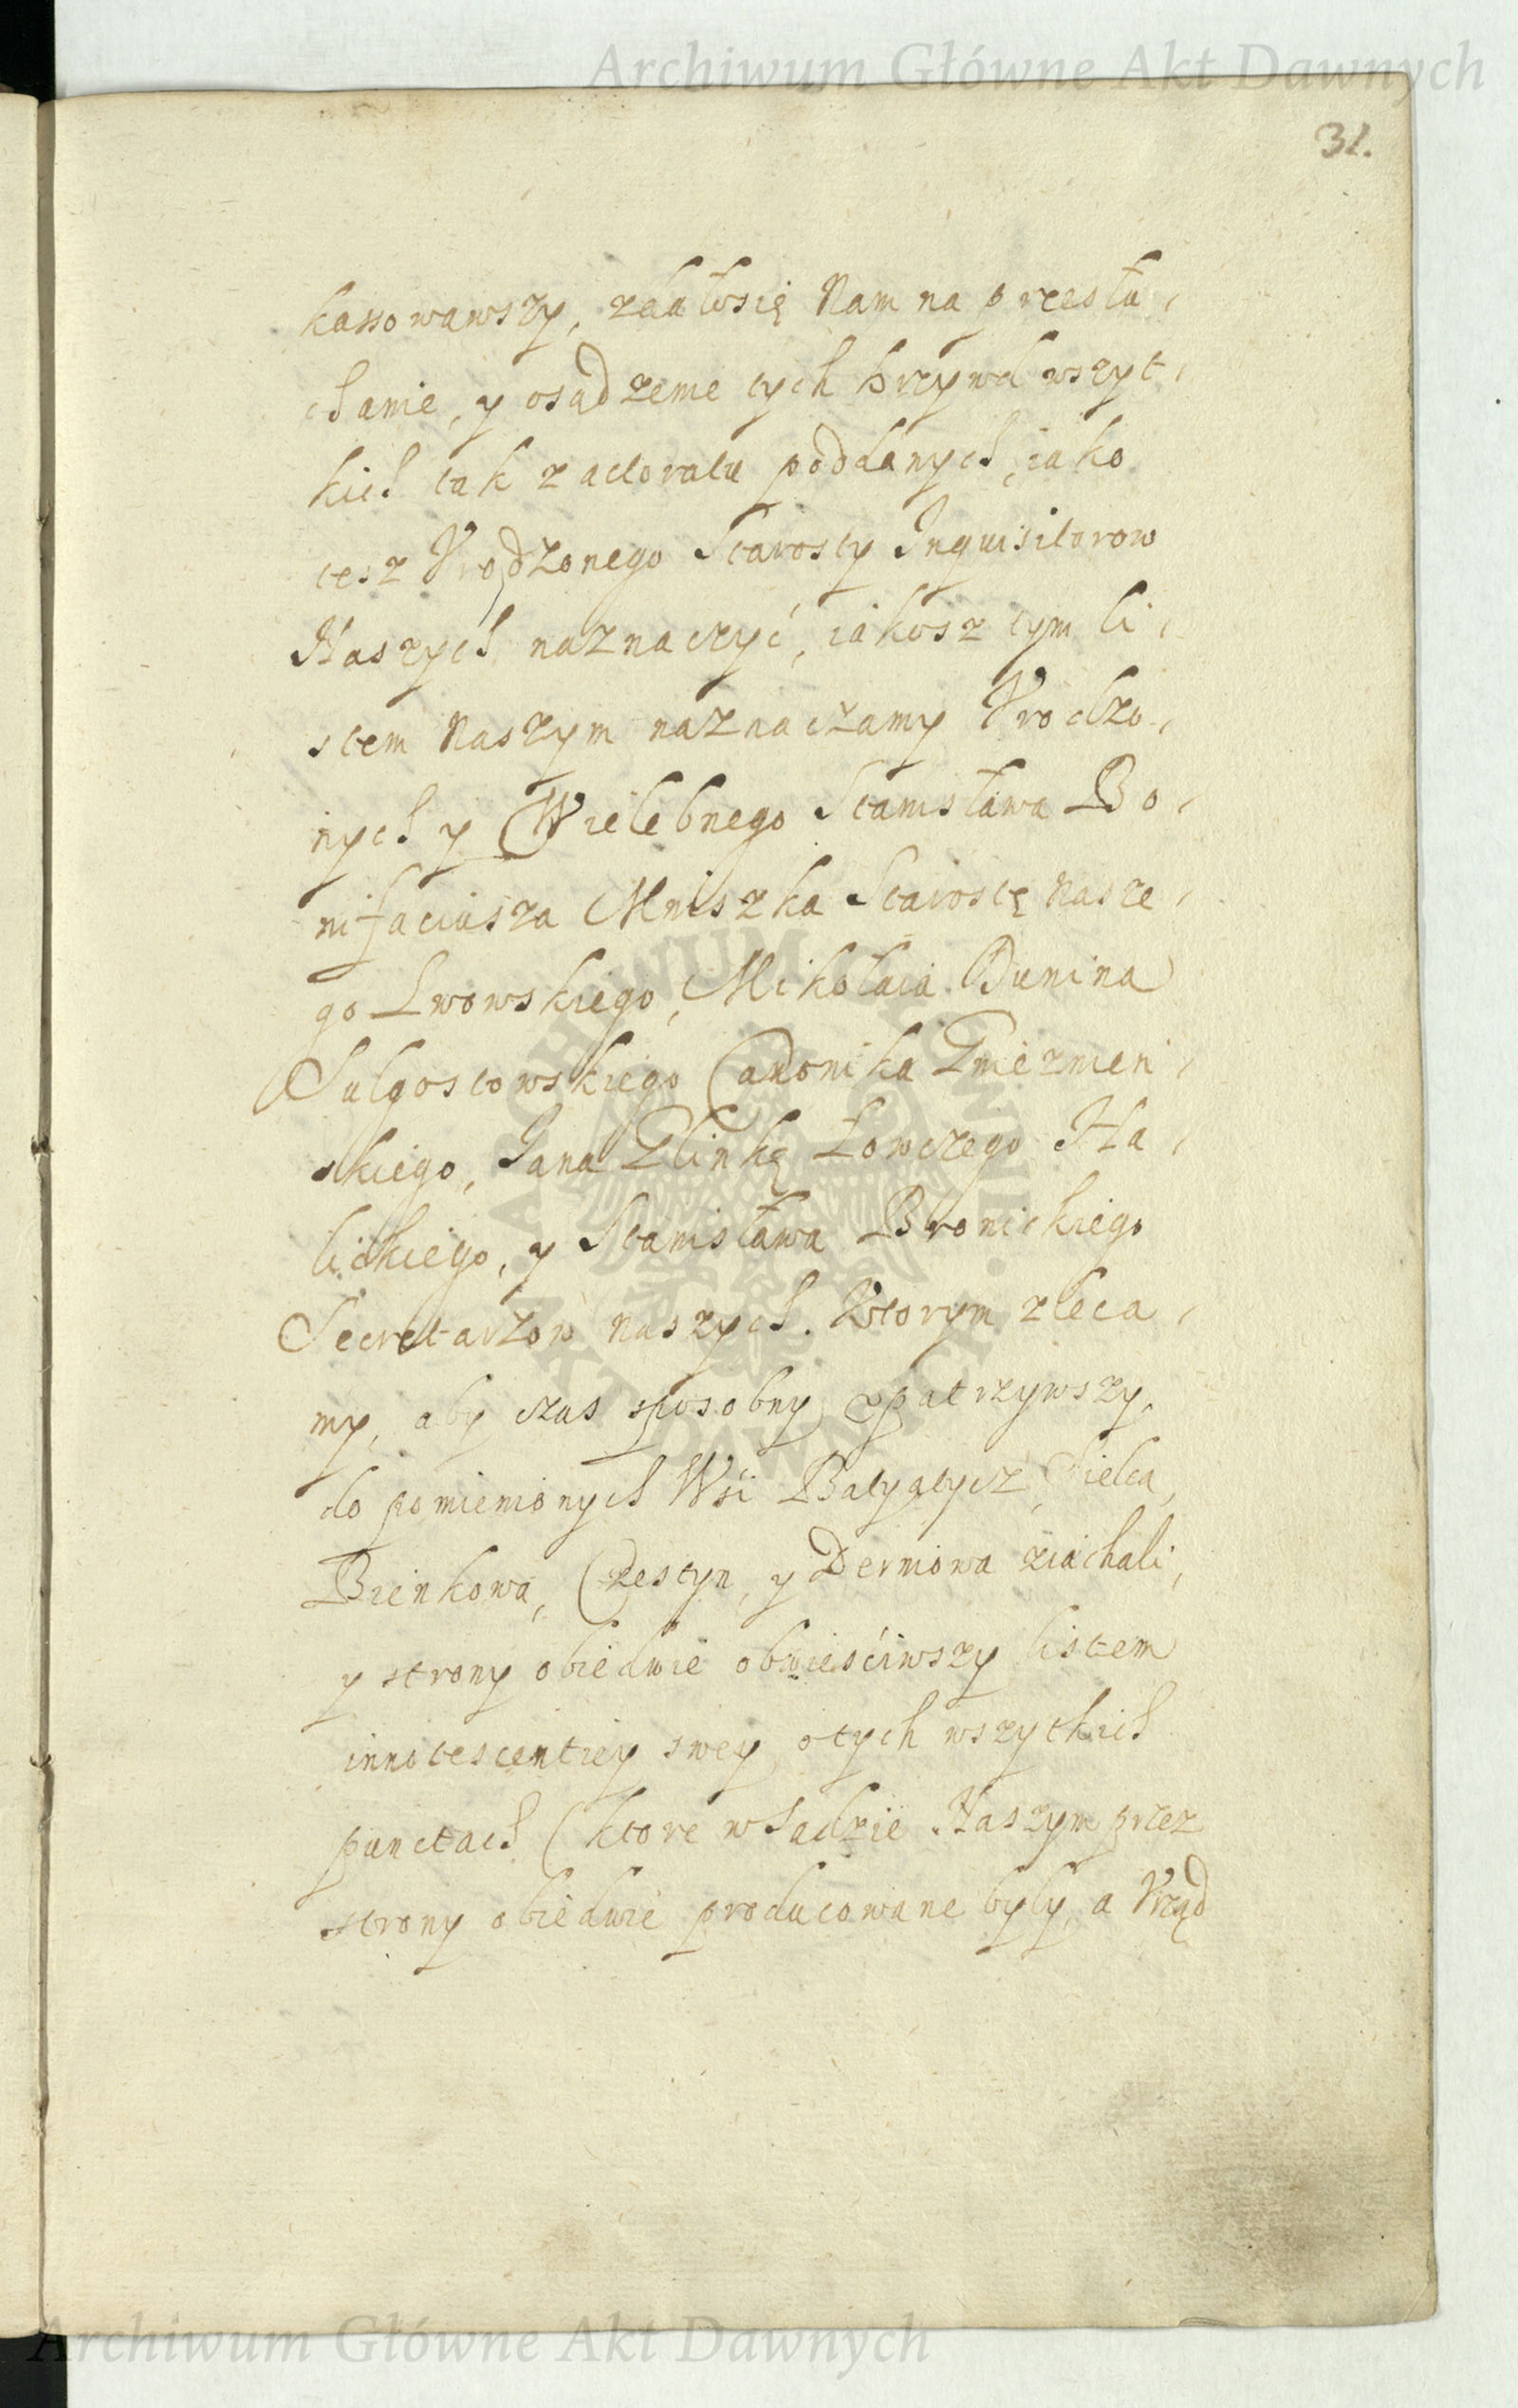 Archiwum Główne Akt Dawnych
31.
kassowawszy, zdało się Nam na przesłu,
chanie, y osądzenie tych krzywd wszyt,
kich tak z actoratu poddanych, iako
tesz Vrodzonego Starosty Inquisitorow
Naszych naznaczyć, iakosz tym li,
stem Naszym naznaczamy Vrodzo,
nych y Wielebnego Stanisława Bo,
nifaciusza Mniszka Starostę nasze,
go Lwowskiego, Mikołaia Dunina
Sulgostowskiego Canonika Gnieznień,
skiego, Jana Glinkę Łowczego Ha,
lickiego, y Stanisława Bronickiego
Secretarzow naszych. Ktorym zleca,
my, aby czas sposobny upatrzywszy,
do pomienionych Wsi Batyatycz, Sielca,
Bieńkowa, Czestyn, y Derniowa ziachali,
y strony obiedwie obwieściwszy listem
innotescentiey swey, o tych wszytkich
punctach (ktore w Sądzie Naszym przez
strony obiedwie producowane były, a Vrząd
ARCHIWUM GŁÓWNE AKT DAWNYCH
Archiwum Główne Akt Dawnych